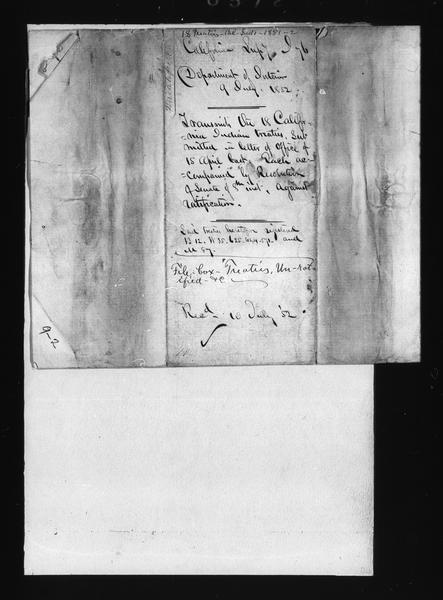 18 Treaties - Cal. Inds - 1851-2
California Supy I.76
Department of Interior
9 July. 1852.
Transmits the 18 Califor-
=nia Indian treaties, Sub
mitted in letter of Office of
15 April last. Each ac-
=companied by Resolution
of Senate of 8th inst, against
ratification.
Said treaties heretofore registered
and
M 87.
File, -box- Treaties, Un-rat-
ified - &c
Recd. 10 July '52
9-2